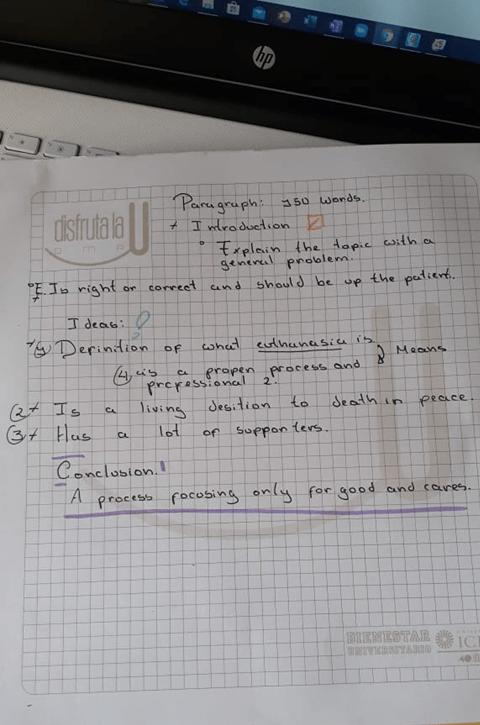 hp
Paragraph: 150 words.
+ Introduction
disfruta la U
° Explain the topic with a
general problem.
°E. Is right or correct and should be up the patient.
Ideas:
Definition of what euthanasia is.
4. is a proper process and
professional 2.
Means
2+ Is a living desition to death in peace.
3+ Has a lot of supporters.
Conclusion.
A process focusing only for good and cares.
BIENESTAR
UNIVERSITARIO